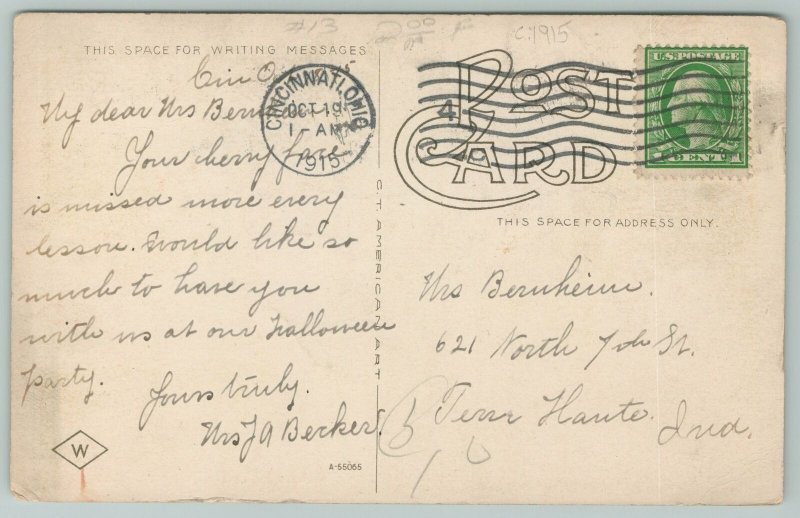 #13
2.00
c.1915
THIS SPACE FOR WRITING MESSAGES
POST CARD
U.S. POSTAGE
1 CENT 1
CINCINNATI, OHIO
OCT 19
1 - AM
1915
THIS SPACE FOR ADDRESS ONLY.
Cin O
My dear Mrs Bern
Your cherry face
is missed more every
lesson. Would like so
much to have you
with us at our Halloween
party.
Yours truly.
Mrs J A Becker.
C.T. AMERICAN ART
Mrs Bernheim.
621 North 7th St.
Terre Haute.
Ind.
W
A-55065